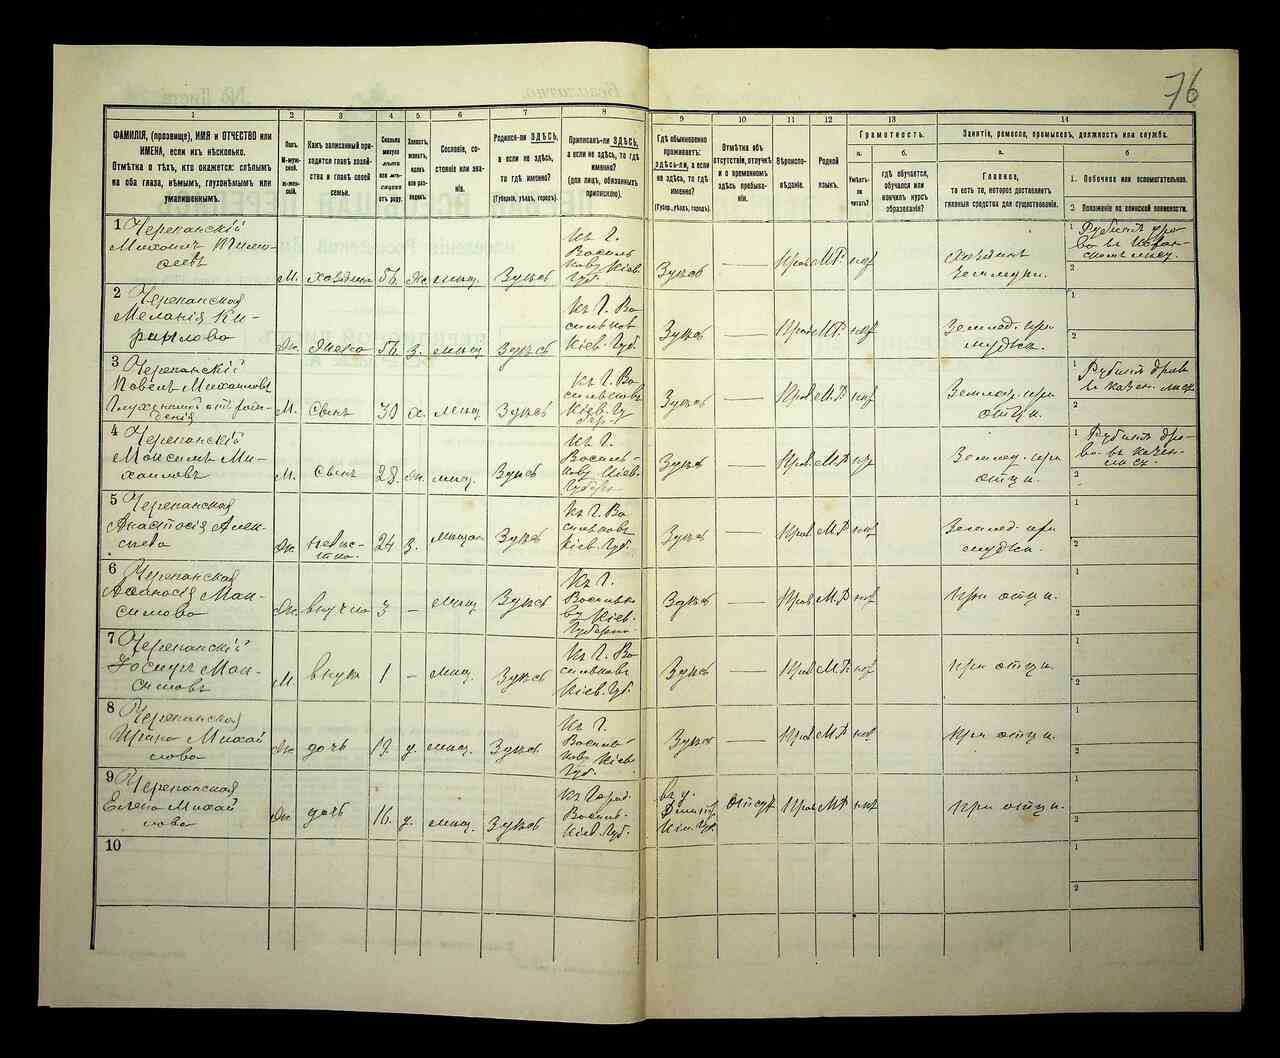 76
1 2 3 4 5 6 7 8 9 10 11 12 13 14
ФАМИЛІЯ, (прозвище), ИМЯ и ОТЧЕСТВО или
ИМЕНА, если ихъ нѣсколько.
Отмѣтка о тѣхъ, кто окажется: слѣпымъ
на оба глаза, нѣмымъ, глухонѣмымъ или
умалишеннымъ.
Полъ.
М-муж-
ской.
Ж-жен-
скій.
Какъ записанный при-
ходится главѣ хозяй-
ства и главѣ своей
семьи.
Сколько
минуло
лѣтъ
или мѣ-
сяцевъ
отъ роду.
Холостъ,
женатъ,
вдовъ
или раз-
веденъ.
Сословіе, со-
стояніе или зва-
ніе.
Родился-ли ЗДѢСЬ,
а если не здѣсь,
то гдѣ именно?
(Губернія, уѣздъ, городъ).
Приписанъ-ли ЗДѢСЬ,
а если не здѣсь, то гдѣ
именно?
(для лицъ, обязанныхъ
припискою).
Гдѣ обыкновенно
проживаетъ:
ЗДѢСЬ-ли, а если
не здѣсь, то гдѣ
именно?
(Губер., уѣздъ, городъ).
Отмѣтка объ
отсутствіи, отлучкѣ
и о временномъ
здѣсь пребыва-
ніи.
Вѣроиспо-
вѣданіе.
Родной
языкъ.
Грамотность.
а.
Умѣетъ-
ли
читать?
б.
гдѣ обучается,
обучался или
кончилъ курсъ
образованія?
Занятіе, ремесло, промыселъ, должность или служба.
а.
Главное,
то есть то, которое доставляетъ
главныя средства для существованія.
б
1. Побочное или вспомогательное.
2 Положеніе по воинской повинности.
1 Черепанскій
Михаилъ Тимо-
фѣевъ
М. хозяинъ 56. ж. мѣщ. Здѣсь
Къ Г.
Василь
кову Кіев.
Губ.
Здѣсь — Прав М.Р. нѣт
Хозяинъ
Земледѣл.
1 Рубитъ дро-
ва въ казен-
номъ лѣсу.
2
2 Черепанская
Меланія Ки-
рилова
Ж. Жена 56. з. мѣщ. Здѣсь
Къ Г. Ва
сильков
Кіев. Губ.
Здѣсь — Прав М.Р. нѣт
Землед. при
мужѣ.
1
2
3 Черепанскій
Павелъ Михаиловъ
Глухонѣмой отъ рож-
денія
М. Сынъ 30 х. мѣщ Здѣсь
Къ Г. Ва
сильковъ
Кіев. Гу
бер-і
Здѣсь — Прав М.Р. нѣт
Землед. при
отцѣ.
1 Рубитъ дрова
въ казен. лѣсу
2
4 Черепанскій
Максимъ Ми-
хаиловъ
М. Сынъ 28. ж. мѣщ. Здѣсь
Къ Г.
Василь-
кову Кіев.
Губерн
Здѣсь — Прав М.Р. нѣт
Землед. при
отцѣ.
1 Рубитъ дро-
ва въ казен-
лѣсу.
2
5 Черепанская
Анастасія Алек-
сѣева
Ж. невѣс-
тка. 24 з. мѣщан Здѣсь
Къ Г. Ва
сильковъ
Кіев. Губ.
Здѣсь — Прав М.Р. нѣт
Землед. при
мужѣ.
1
2
6 Черепанская
Афанасія Мак-
симова
Ж. внучка 3 – мѣщ Здѣсь
Къ Г.
Василько
ву Кіев.
Губерн.
Здѣсь — Прав М.Р нѣт
При отцѣ.
1
2
7 Черепанскій
Іосифъ Мак-
симовъ
М. внукъ 1 – мѣщ. Здѣсь
Къ Г. Ва
сильковъ
Кіев. Губ.
Здѣсь — Прав М.Р. нѣт
При отцѣ.
1
2
8 Черепанская
Михай
лова
Ж. дочь 19. д. мѣщ. Здѣсь
Къ Г.
Василь-
кову Кіев.
Губ.
Здѣсь — Прав М.Р нѣт
При отцѣ.
1
2
9 Черепанская
Елена Михай
лова
Ж. дочь 16. д. мѣщ. Здѣсь
Къ Город.
Василь-
Кіев. Губ.
въ д.
Кіев. Губ.
отсут Прав М.Р нѣт
При отцѣ.
1
2
10
1
2